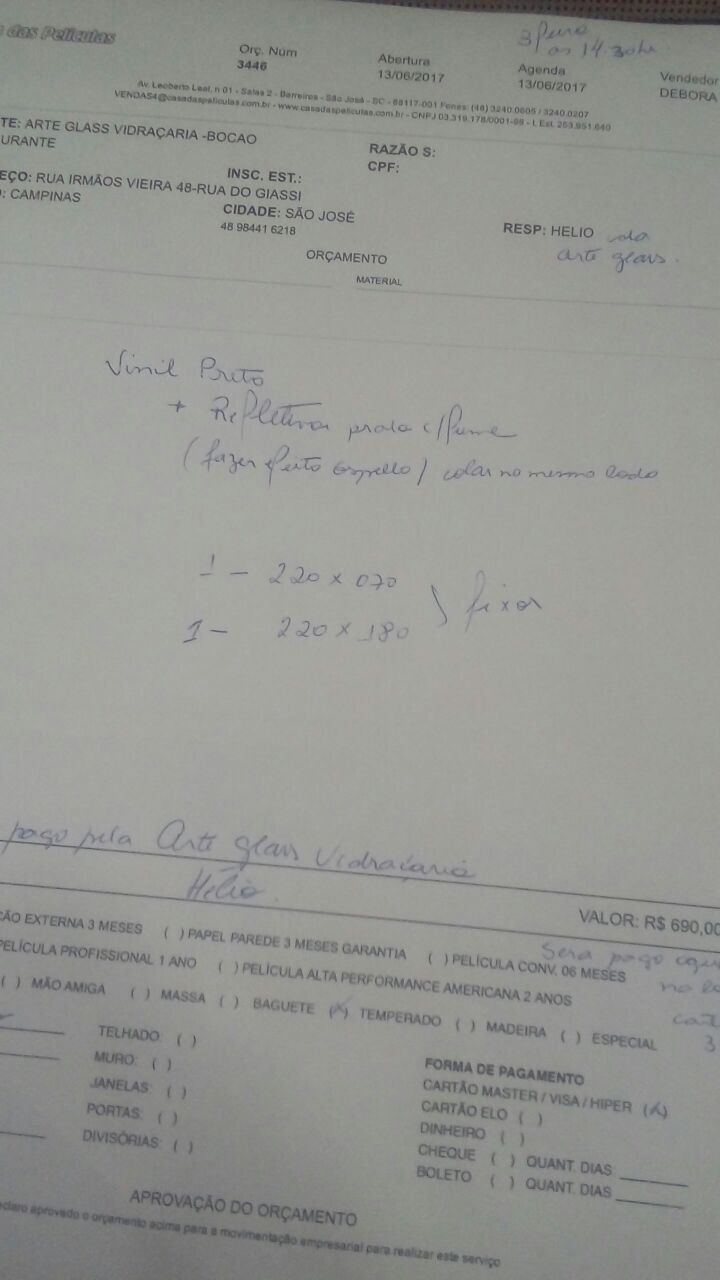 das Películas
3 furo
as 14:30hr
Orç. Núm
3446
Abertura
13/06/2017
Agenda
13/06/2017
Vendedor
DEBORA
Av. Leoberto Leal, n 01 - Salas 2 - Barreiros - São José - SC - 88117-001 Fones: (48) 3240.0605 / 3240.0207
VENDAS4@casadaspeliculas.com.br - www.casadaspeliculas.com.br - CNPJ 03.319.178/0001-98 - I. Est. 253.951.640
TE: ARTE GLASS VIDRAÇARIA -BOCAO
URANTE
RAZÃO S:
CPF:
INSC. EST.:
EÇO: RUA IRMÃOS VIEIRA 48-RUA DO GIASSI
: CAMPINAS
CIDADE: SÃO JOSÉ
48 98441 6218
RESP: HELIO da
arte glass.
ORÇAMENTO
MATERIAL
Vinil Preto
+ Refletiva prata c/fume
(fazer efeito espelho) colar no mesmo lado
1 - 220 x 070
1 - 220 x 180
fixos
pago pela Arte glass Vidraçaria
Hélio.
VALOR: R$ 690,00
ÇÃO EXTERNA 3 MESES ( ) PAPEL PAREDE 3 MESES GARANTIA ( ) PELÍCULA CONV. 06 MESES
Sera pago aqui
PELÍCULA PROFISSIONAL 1 ANO ( ) PELÍCULA ALTA PERFORMANCE AMERICANA 2 ANOS
na
( ) MÃO AMIGA ( ) MASSA ( ) BAGUETE (X) TEMPERADO ( ) MADEIRA ( ) ESPECIAL
3
TELHADO: ( )
MURO: ( )
JANELAS: ( )
PORTAS: ( )
DIVISÓRIAS: ( )
FORMA DE PAGAMENTO
CARTÃO MASTER / VISA / HIPER (X)
CARTÃO ELO ( )
DINHEIRO ( )
CHEQUE ( ) QUANT. DIAS
BOLETO ( ) QUANT. DIAS
APROVAÇÃO DO ORÇAMENTO
eclaro aprovado o orçamento acima para a movimentação empresarial para realizar este serviço